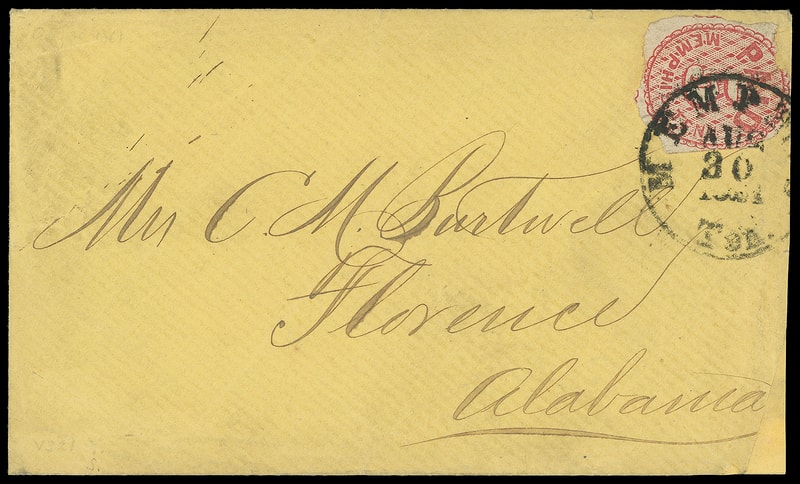 PAID
MEMPHIS
MEMPHIS
AUG
30
1861
Ten.
Mrs C. M. Burtwell
Florence
Alabama